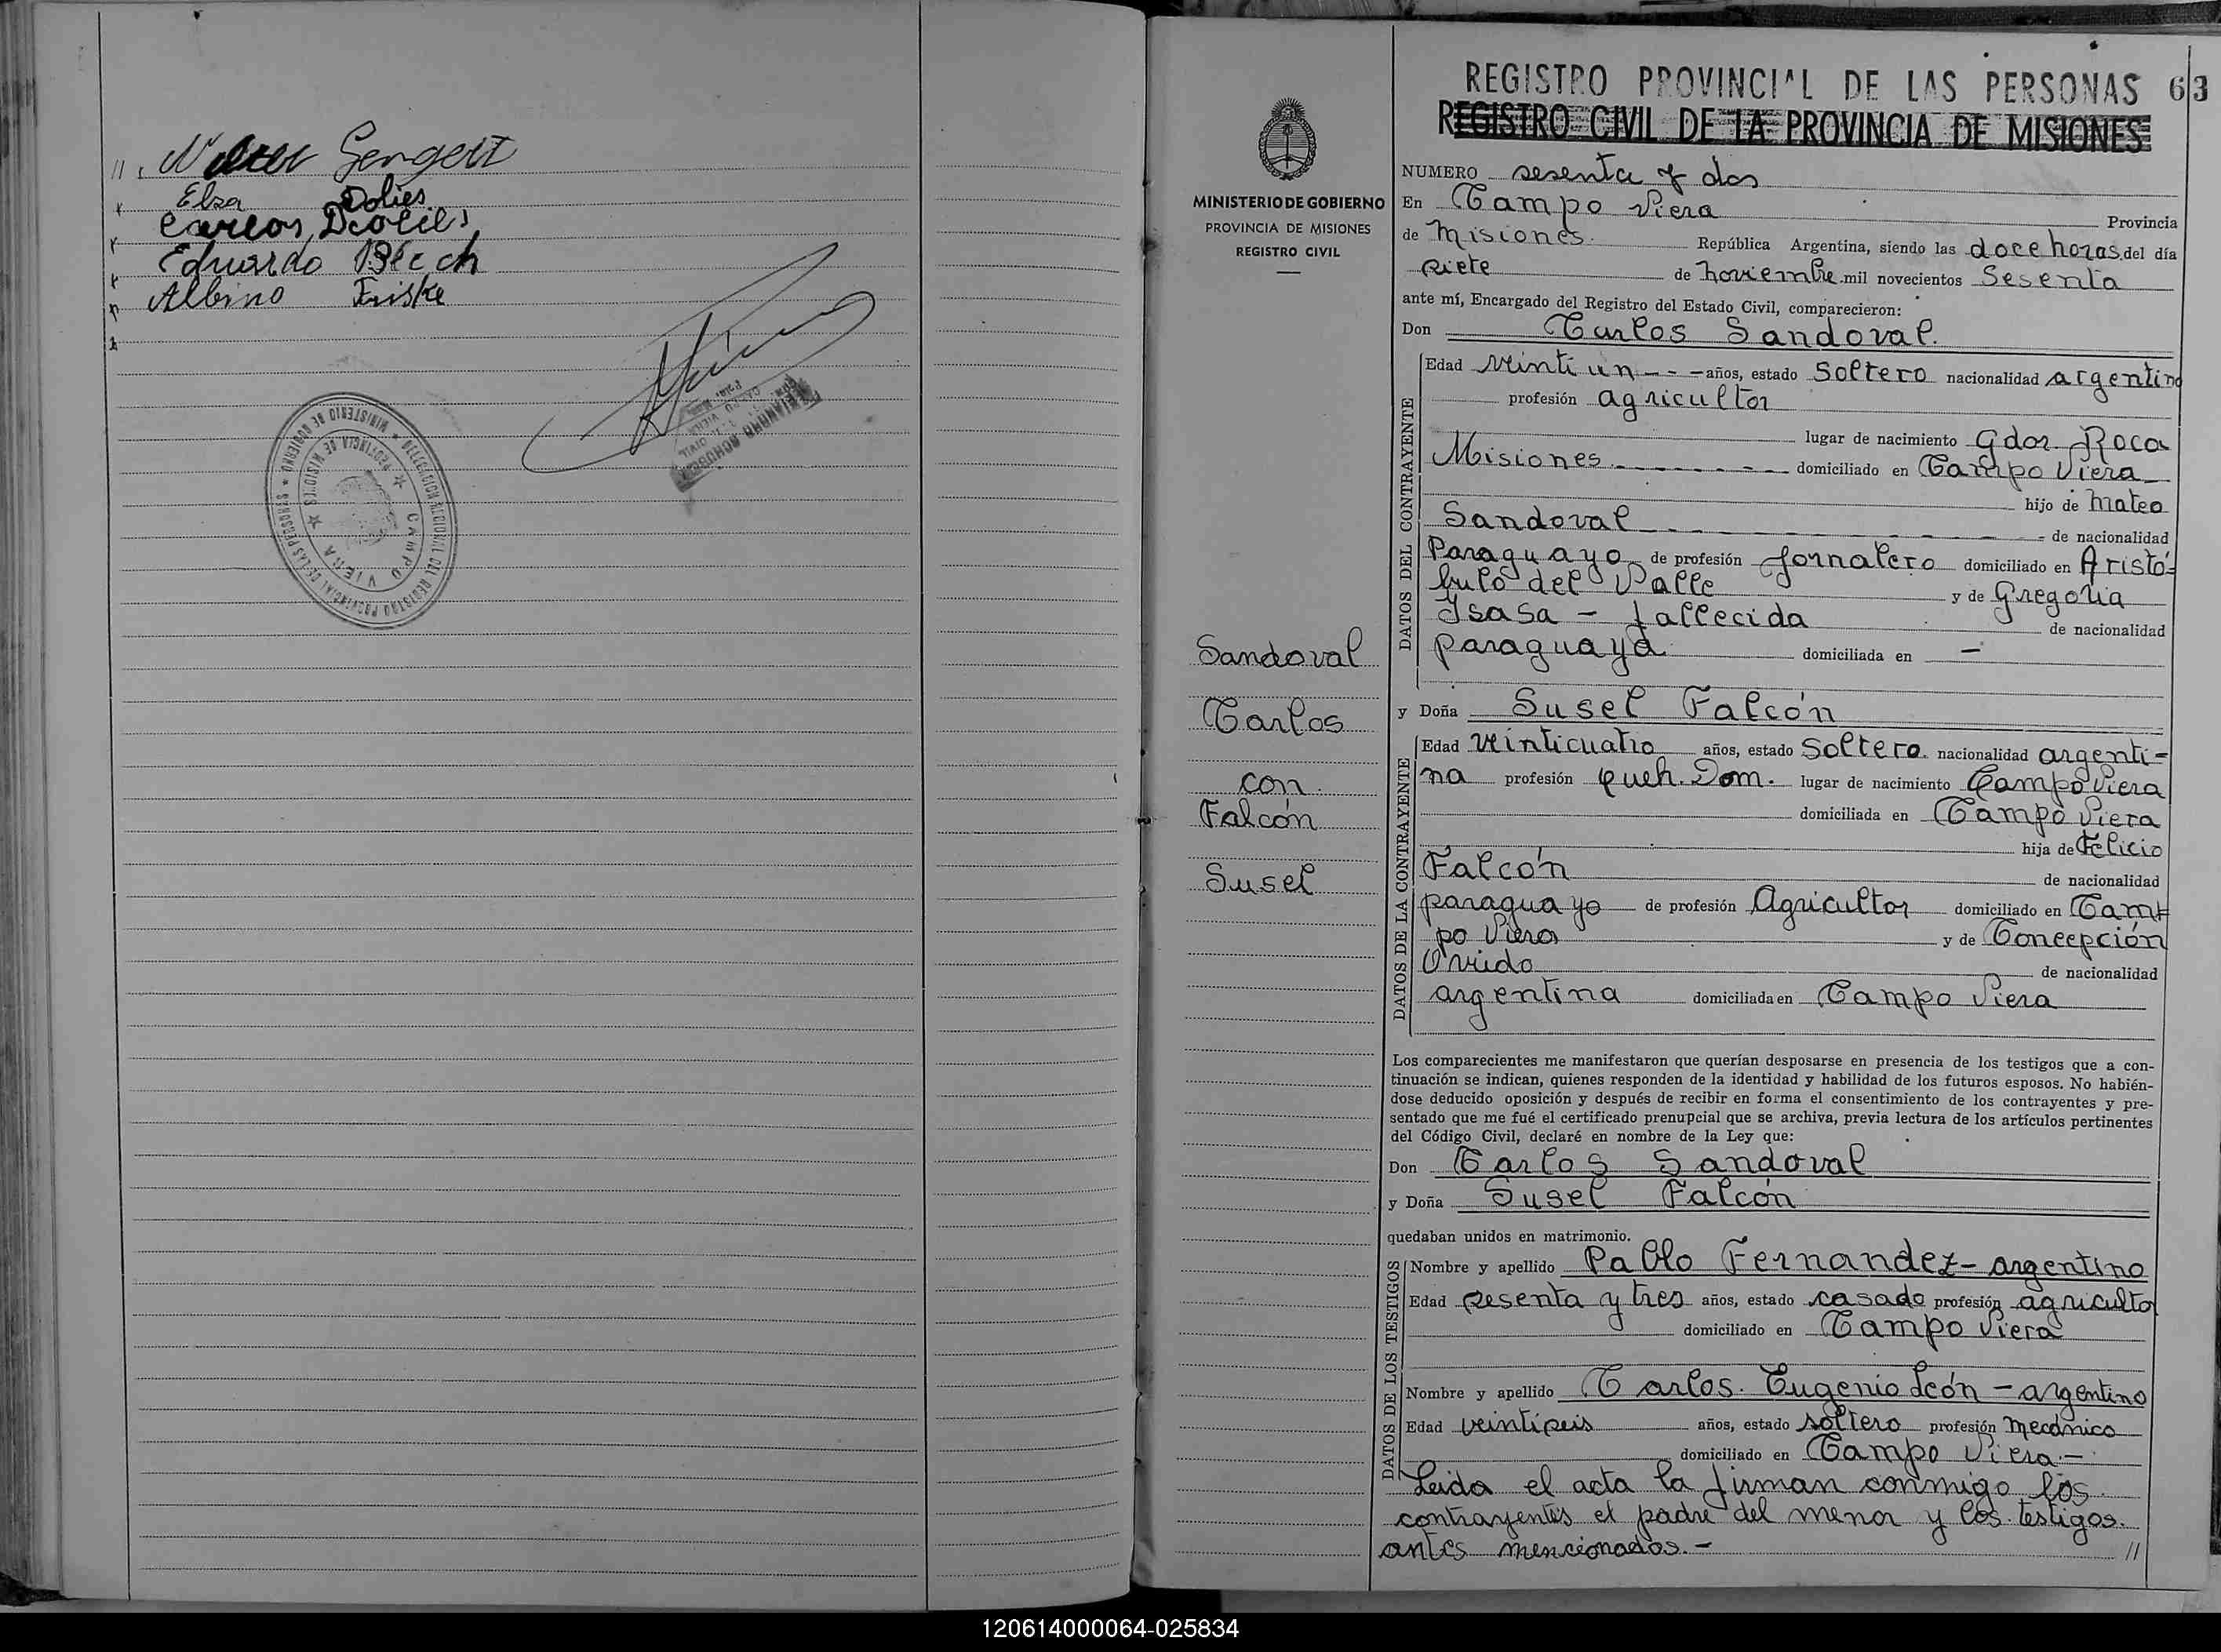 Gengelt
Elsa Dolies
Carlos, Diolies
Eduardo Blech
Albino Friske
MINISTERIO DE GOBIERNO
PROVINCIA DE MISIONES
CAMPO VIERA
REGISTRO PROVINCIAL DE LAS PERSONAS 63
REGISTRO CIVIL DE LA PROVINCIA DE MISIONES
MINISTERIO DE GOBIERNO
PROVINCIA DE MISIONES
REGISTRO CIVIL
Sandoval
Carlos
con
Falcón
Susel
NUMERO sesenta y dos
En Campo Viera Provincia
de Misiones República Argentina, siendo las doce horas del día
siete de noviembre mil novecientos Sesenta
ante mí, Encargado del Registro del Estado Civil, comparecieron:
Don Carlos Sandoval.
DATOS DEL CONTRAYENTE
Edad veinti un - - - años, estado soltero nacionalidad argentino
profesión agricultor
lugar de nacimiento Gdor. Roca
Misiones domiciliado en Campo Viera
hijo de Mateo
Sandoval de nacionalidad
Paraguayo de profesión Jornalero domiciliado en Aristó=
bulo del Valle y de Gregoria
Isasa - fallecida de nacionalidad
paraguaya domiciliada en -
y Doña Susel Falcón
DATOS DE LA CONTRAYENTE
Edad veinticuatro años, estado soltera nacionalidad argenti=
na profesión queh. Dom. lugar de nacimiento Campo Viera
domiciliada en Campo Viera
hija de Felicio
Falcón de nacionalidad
paraguayo de profesión Agricultor domiciliado en Cam=
po Viera y de Concepción
Oviedo de nacionalidad
argentina domiciliada en Campo Viera
Los comparecientes me manifestaron que querían desposarse en presencia de los testigos que a con-
tinuación se indican, quienes responden de la identidad y habilidad de los futuros esposos. No habién-
dose deducido oposición y después de recibir en forma el consentimiento de los contrayentes y pre-
sentado que me fué el certificado prenupcial que se archiva, previa lectura de los artículos pertinentes
del Código Civil, declaré en nombre de la Ley que:
Don Carlos Sandoval
y Doña Susel Falcón
quedaban unidos en matrimonio.
DATOS DE LOS TESTIGOS
Nombre y apellido Pablo Fernandez - argentino
Edad sesenta y tres años, estado casado profesión agricultor
domiciliado en Campo Viera
Nombre y apellido Carlos Eugenio León - argentino
Edad veintiseis años, estado soltero profesión mecánico
domiciliado en Campo Viera.-
Leida el acta la firman conmigo los
contrayentes el padre del menor y los testigos
antes mencionados.- //
120614000064-025834